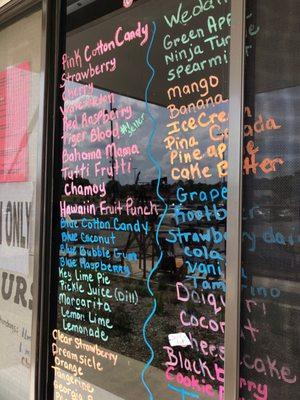 Pink Cotton Candy
Strawberry
Cherry
Watermelon
Red Raspberry
Tiger Blood
Bahama Mama
Tutti Frutti
Chamoy
Hawaiin Fruit Punch
Blue Cotton Candy
Blue Coconut
Blue Bubble Gum
Blue Raspberry
Key Lime Pie
Pickle Juice (Dill)
Margarita
Lemon Lime
Lemonade
Clear Strawberry
Dreamsicle
Orange
Tangerine
Georgia
Weddin
Green Apple
Ninja Turtle
spearmint
mango
Banana
Ice Cream
Pina Colada
Pineapple
Cake Batter
Grape
Rootbeer
Strawberry
cola
vani
Tamarindo
Daiquiri
Coconut
Cheesecake
Blackberry
Cookie
ONLY
URS